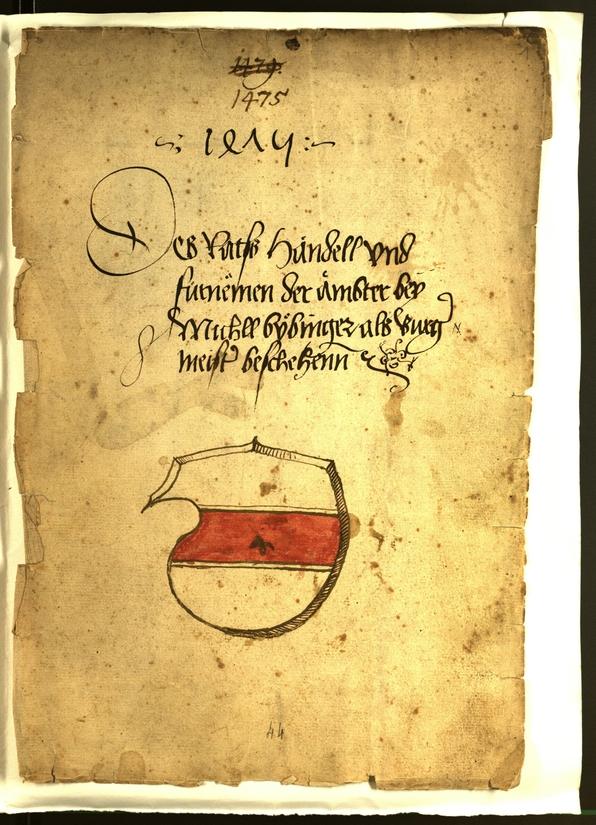 1479
1475
1ꝭΛ5
Des Ratss Händell vnd
furnemen der ämbter bey
Michll bÿbinger als burg
meist beschehenn
44